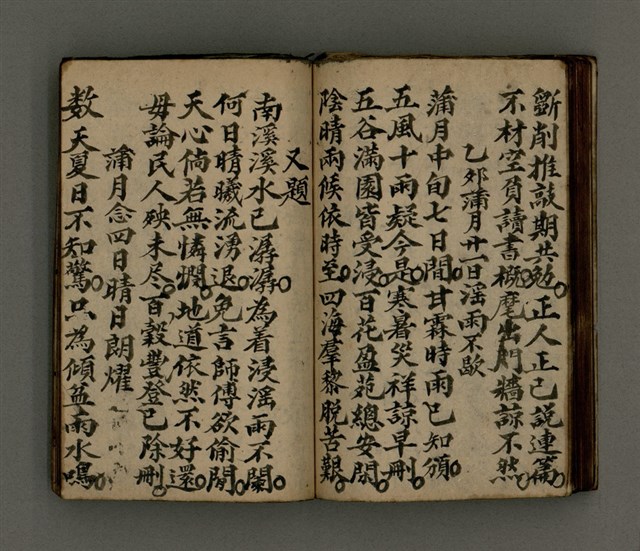 斵削推敲期共勉。正人正己說連篇。
不材空負讀書櫥。麾出門牆諒不然。
乙卯蒲月廿一日滛雨不歇
蒲月中旬七日間。甘霖時雨已知頒。
五風十雨疑今是。寒暑災祥諒早刪。
五谷滿園皆受浸。百花盈苑總安閑。
陰晴雨候依時至。四海羣黎脫苦艱。
又題
南溪溪水已潺潺。為着浸滛雨不闌。
何日晴曦流湧退。免言師傅欲偷閒。
天心倘若無憐憫。地道依然不好還。
毋論民人殃未尽。百穀豐登已除刪。
蒲月念四日晴日朗燿
数天夏日不知驚。只為傾盆雨水鳴。